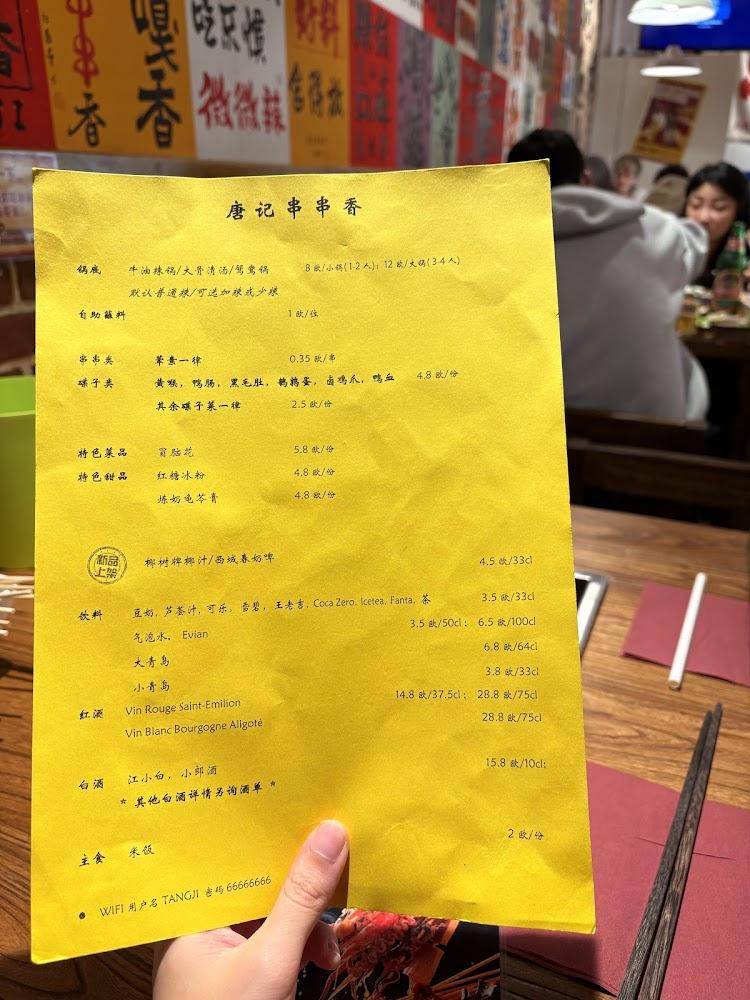 串串香
嘎香
吃乐慎
微微辣
唐记串串香
锅底 牛油辣锅/大骨清汤/鸳鸯锅 8欧/小锅(1-2人); 12欧/大锅(3-4人)
默认普通辣/可选加辣或少辣
自助蘸料 1欧/位
串串类 荤素一律 0.35欧/串
碟子类 黄喉, 鸭肠, 黑毛肚, 鹌鹑蛋, 卤鸡爪, 鸭血 4.8欧/份
其余碟子菜一律 2.5欧/份
特色菜品 冒脑花 5.8欧/份
特色甜品 红糖冰粉 4.8欧/份
炼奶龟苓膏 4.8欧/份
新品上架 椰树牌椰汁/西域春奶啤 4.5欧/33cl
饮料 豆奶, 芦荟汁, 可乐, 雪碧, 王老吉, Coca Zero, Icetea, Fanta, 茶 3.5欧/33cl
气泡水, Evian 3.5欧/50cl; 6.5欧/100cl
大青岛 6.8欧/64cl
小青岛 3.8欧/33cl
红酒 Vin Rouge Saint-Emilion 14.8欧/37.5cl; 28.8欧/75cl
Vin Blanc Bourgogne Aligoté 28.8欧/75cl
白酒 江小白, 小郎酒 15.8欧/10cl;
* 其他白酒详情另询酒单 *
主食 米饭 2欧/份
● WIFI 用户名 TANGJI 密码 66666666